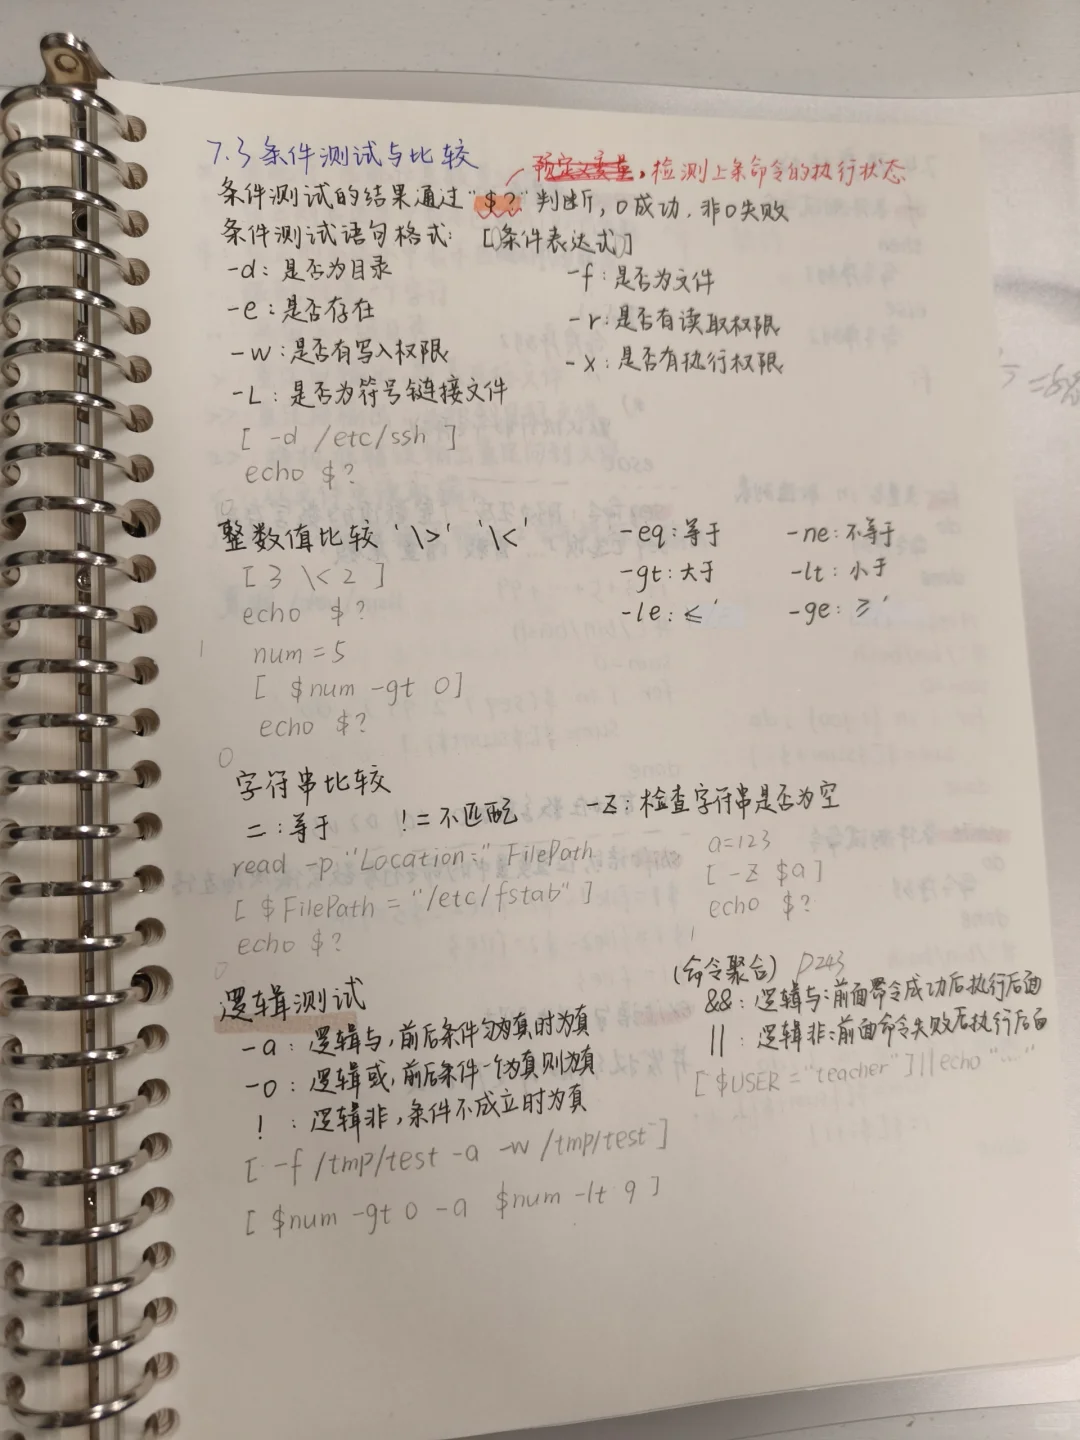 7.3条件测试与比较
预定义变量,检测上条命令的执行状态
条件测试的结果通过"$?"判断,0成功,非0失败
条件测试语句格式: [ 条件表达式 ]
-d: 是否为目录 -f: 是否为文件
-e: 是否存在 -r: 是否有读取权限
-w: 是否有写入权限 -x: 是否有执行权限
-L: 是否为符号链接文件
[ -d /etc/ssh ]
echo $?
0
整数值比较 '\>' '\<' -eq: 等于 -ne: 不等于
[ 3 \< 2 ] -gt: 大于 -lt: 小于
echo $? -le: ≤ -ge: ≥
1
num=5
[ $num -gt 0]
echo $?
0
字符串比较
=: 等于 != 不匹配 -z: 检查字符串是否为空
read -p "Location:" FilePath
[ $FilePath = "/etc/fstab" ]
echo $?
0
a=123
[ -z $a ]
echo $?
1
逻辑测试
-a: 逻辑与,前后条件匀为真时为真
-o: 逻辑或,前后条件一个为真则为真
!: 逻辑非,条件不成立时为真
[ -f /tmp/test -a -w /tmp/test ]
[ $num -gt 0 -a $num -lt 9 ]
(命令聚合) P243
&&: 逻辑与:前面命令成功后执行后面
||: 逻辑非:前面命令失败后执行后面
[ $USER = "teacher" ]||echo "..."